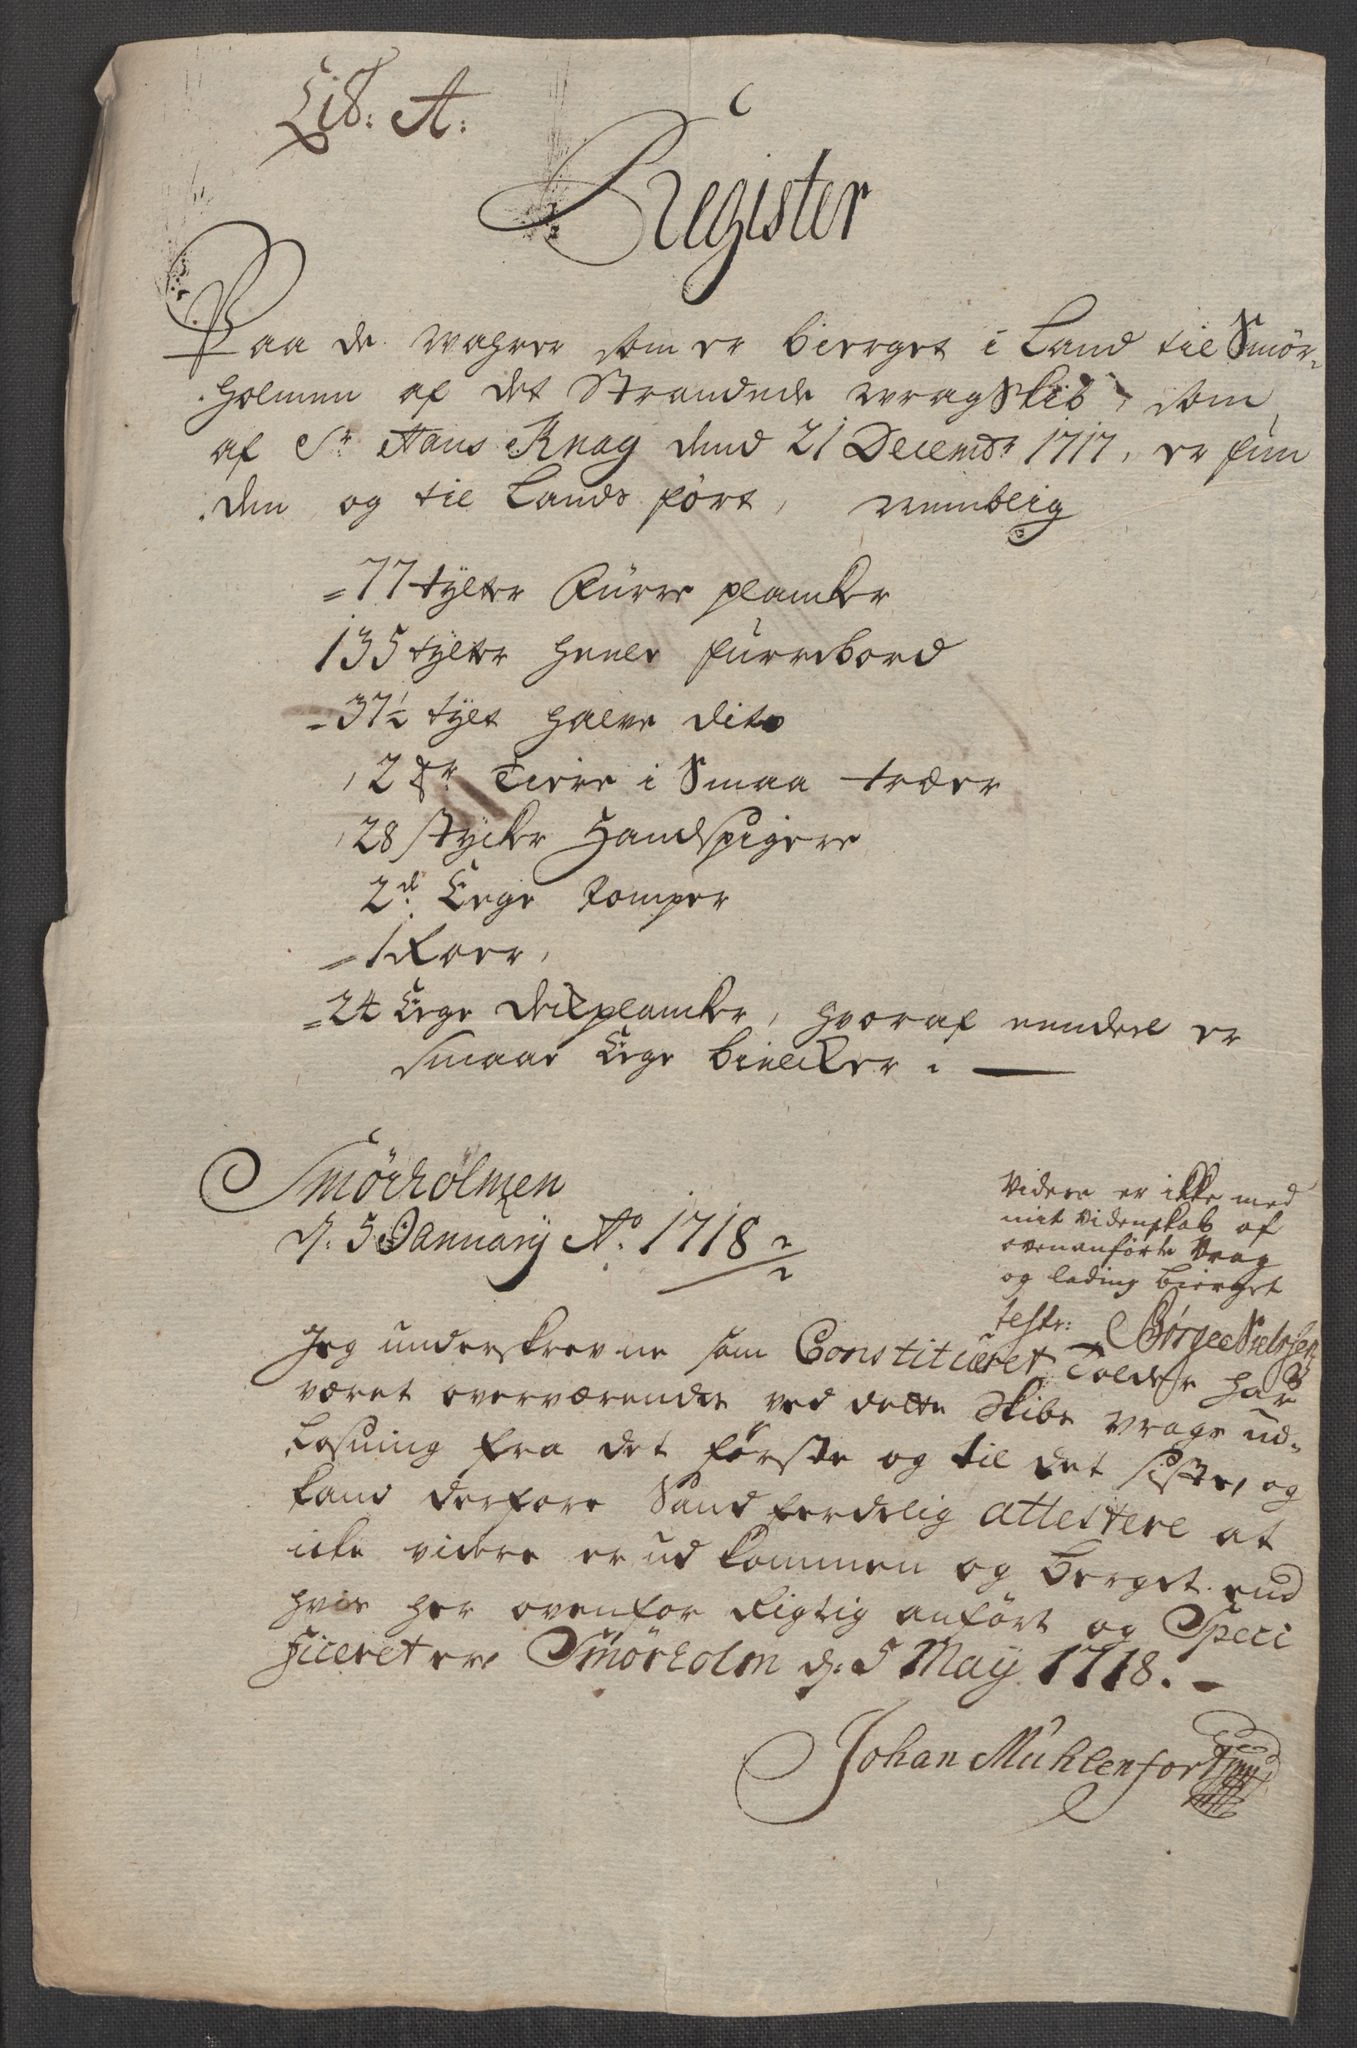 Lit: A:
Register
Paa de wahrer som er bierget i Land til Smör-
holmen af det Strandede wragSkib, som
af Sr Hans Knag dend 21 Decembr 1717, er fun
den og til Lands fört, nemblig
=77 tylter Fürre plancker
135 tylter heele furrebord
-37½ tylt halve dito
2 tr Tiere i Smaa træer
28 stycker Handspigere
2 dr Eege Pomper
=1 Roer,
=24 Eege deckplancker, hvoraf eendeel er
smaae Eege bielcker.
Smörholmen
d. 5 January Ao 1718
Videre er ikke med
mit Videnskab af
ovenanførte Vrag
og lading bierget
test: Børge Nielssen
Jeg underskrevne som Constitueret Tolder har
været overværende ved dette Skibs vrags ud-
Losning fra det første og til det siste, og
kand derfore Sandferdelig attestere at
icke videre er udkommen og berget end
hvis her ovenfor Rigtig anfört og Speci
ficeret er Smörholm d: 5 May 1718.-
Johan Mühlenfort